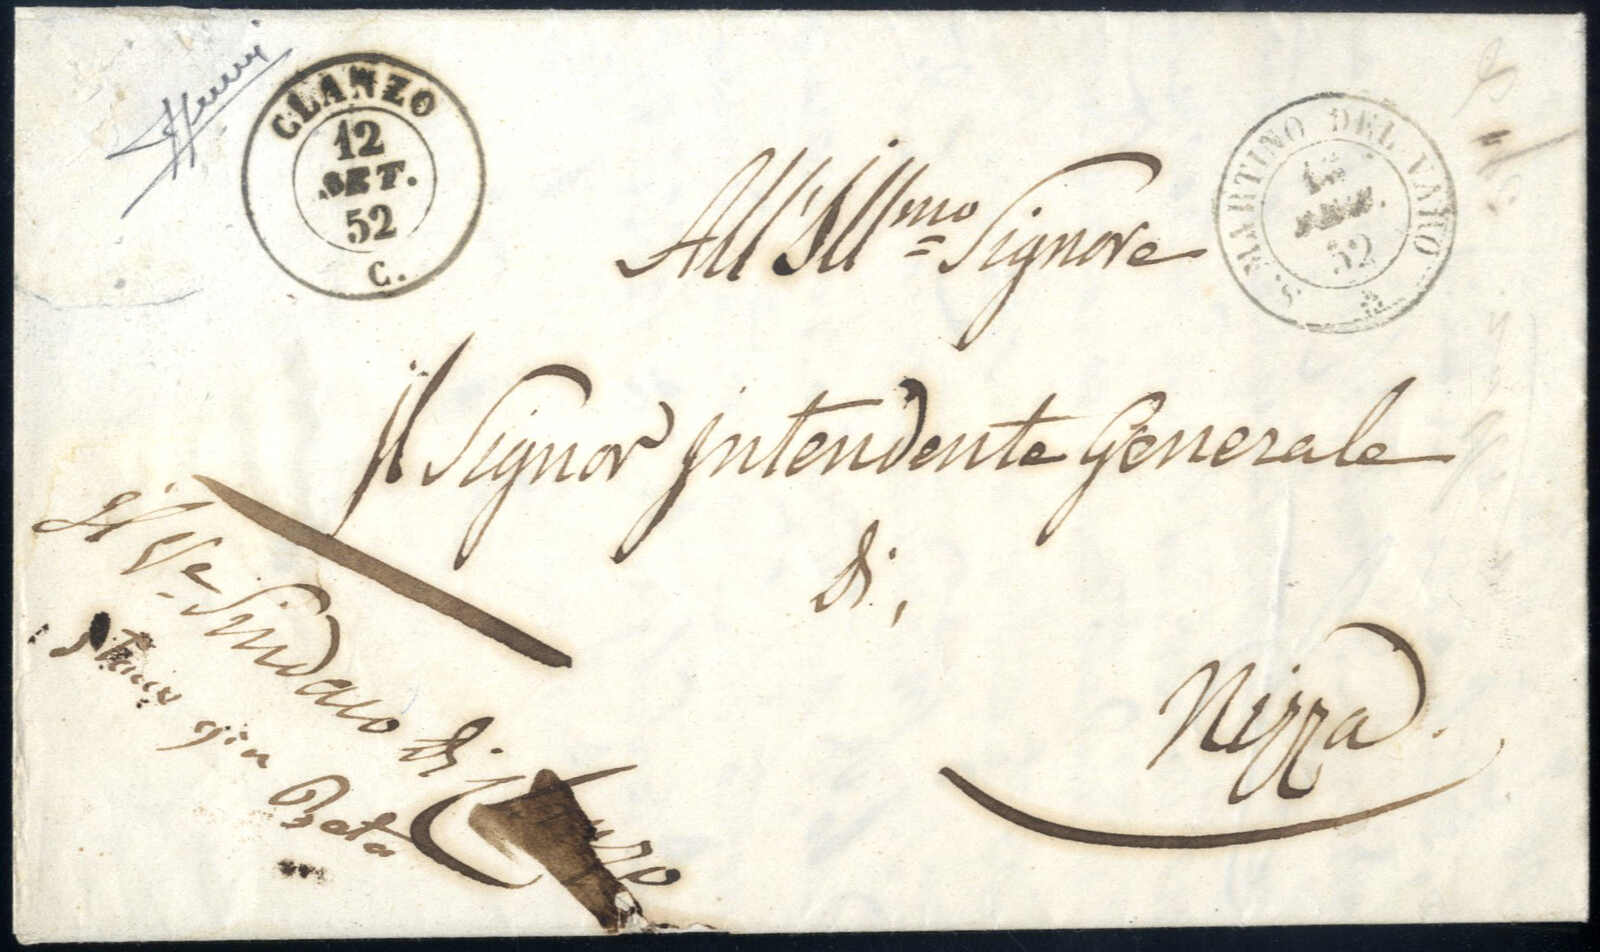 CLANZO
12
SET.
52
C.
S. MARTINO DEL VARO
SET.
52
All'Ill.mo Signore
Il Signor Intendente Generale
di,
Nizza.
Il V.e Sindaco di
Gio Batta